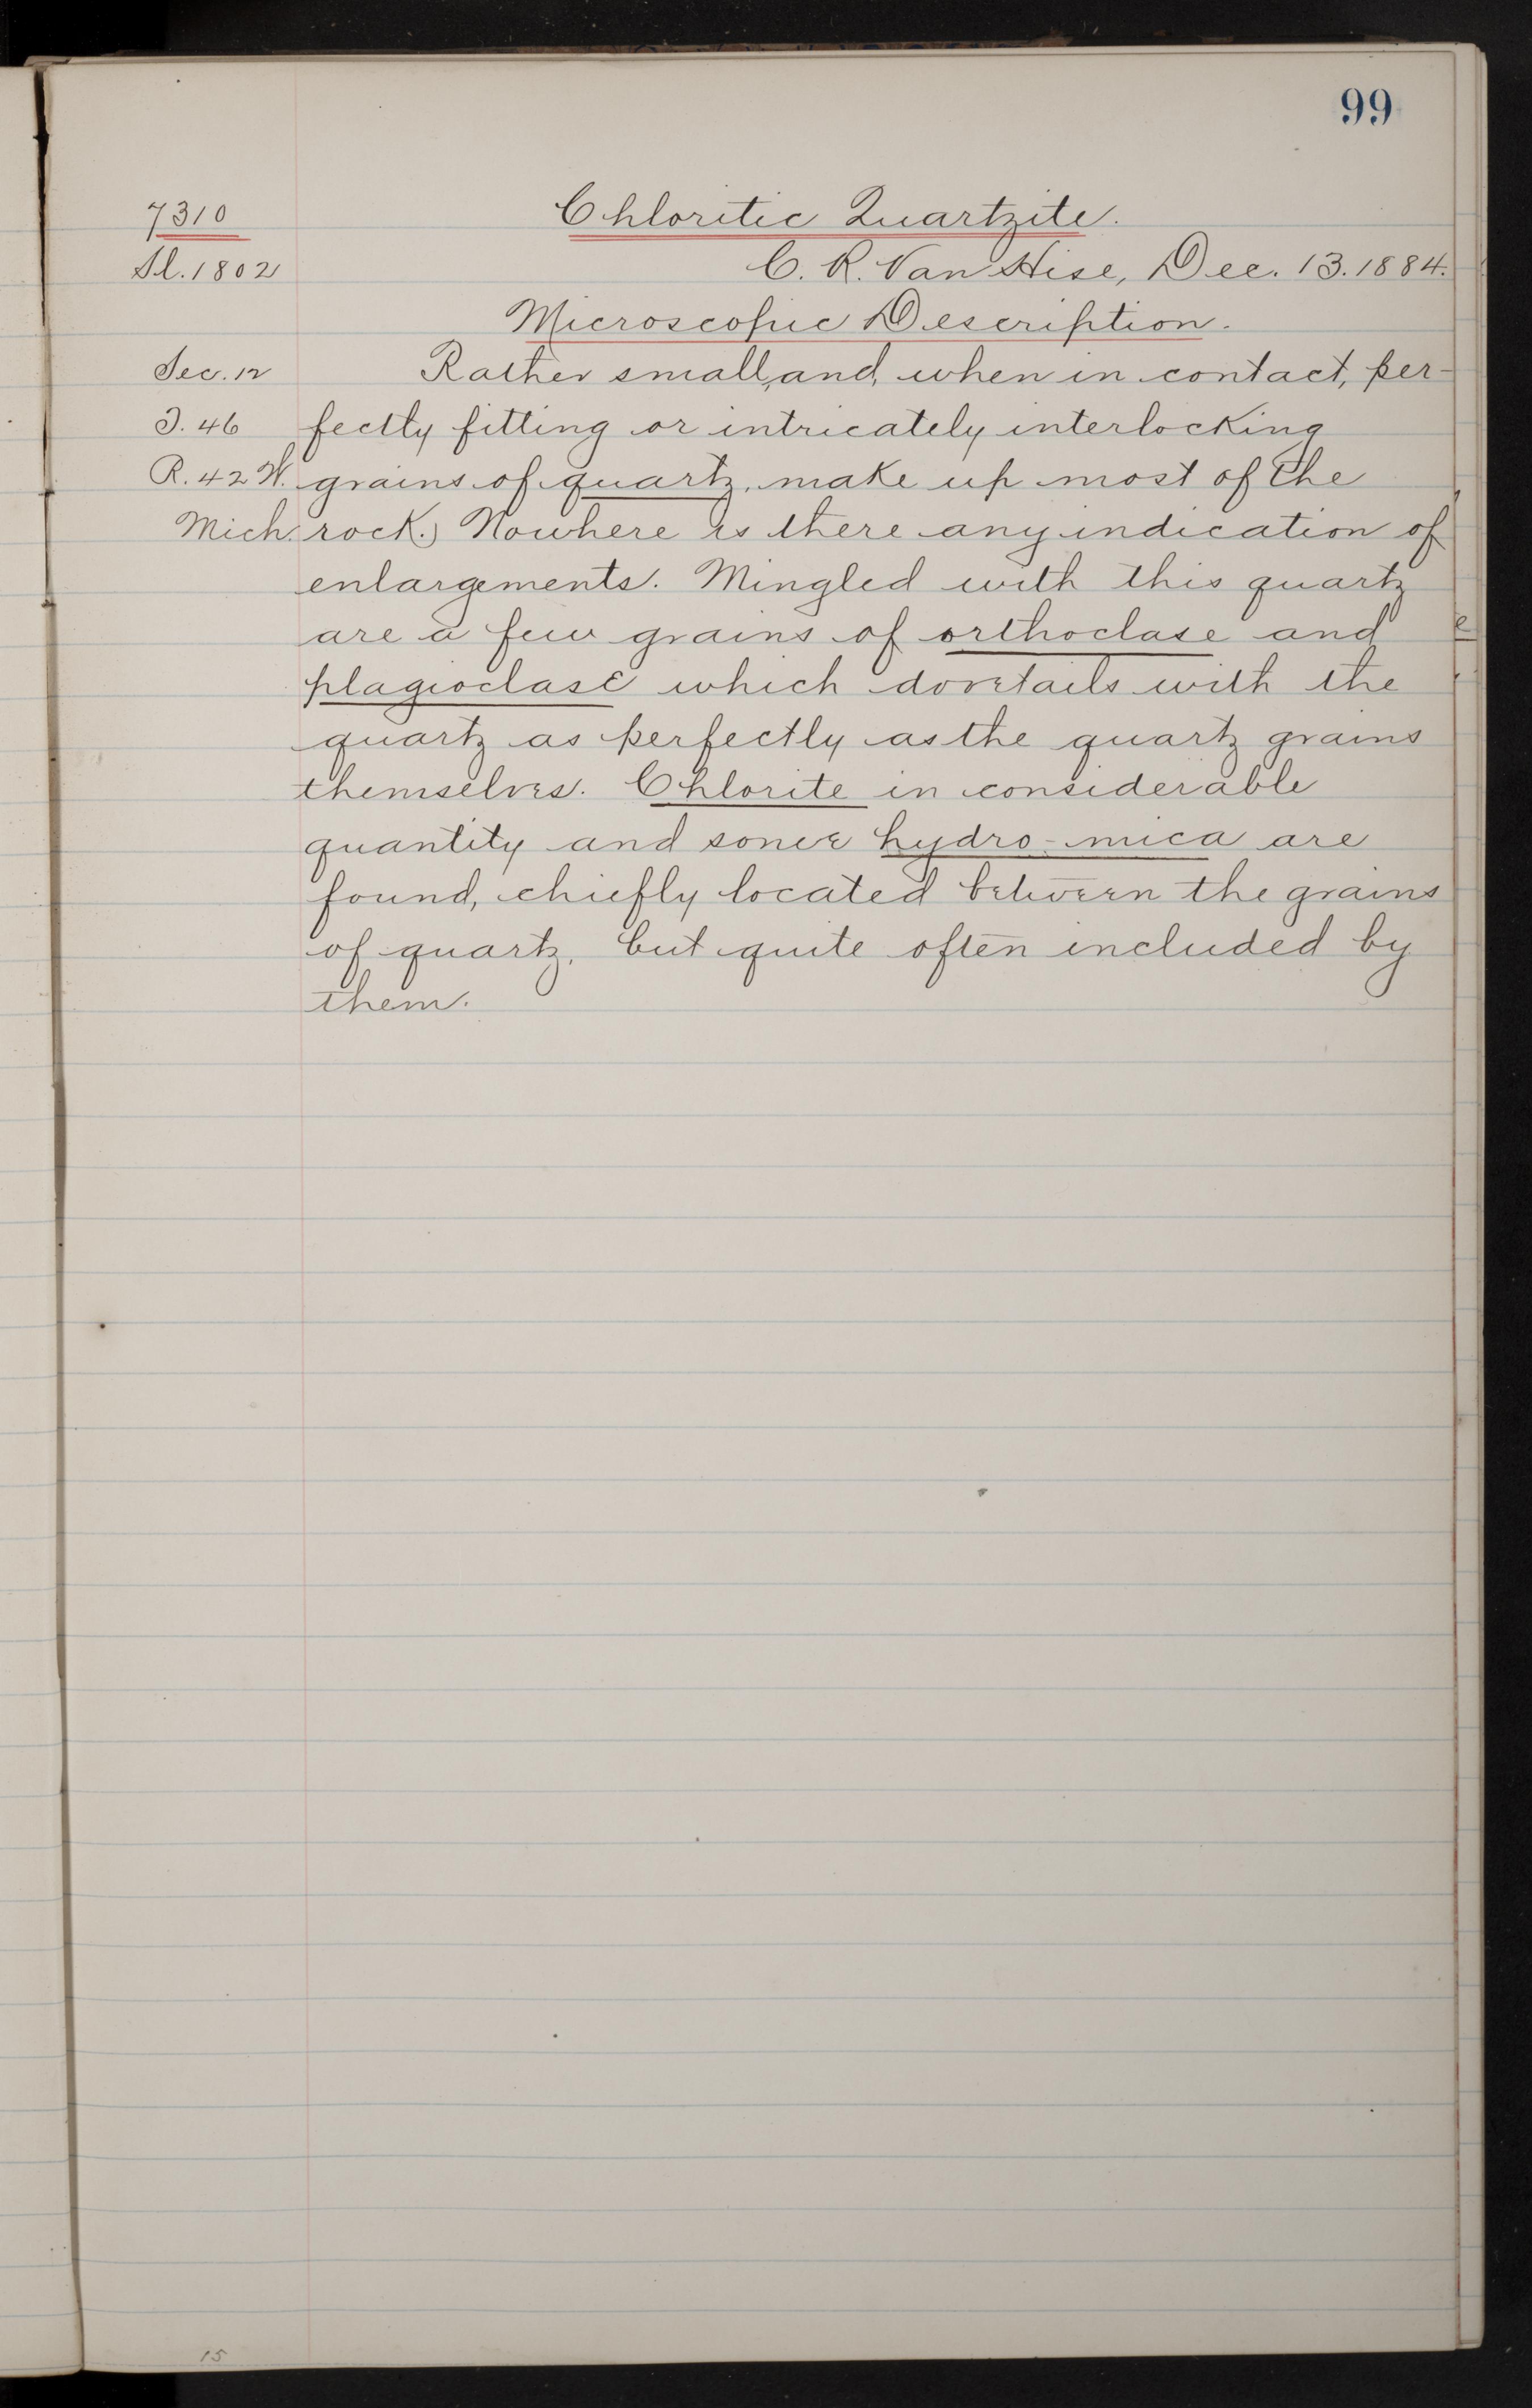 99
7310 Chloritic Quartzite.
Sl. 1802 C. R. Van Hise, Dec. 13. 1884.
Microscopic Description.
Sec. 12 Rather small, and, when in contact, per-
T. 46 fectly fitting or intricately interlocking
R. 42 W. grains of quartz, make up most of the
Mich. rock. Nowhere is there any indication of
enlargements. Mingled with this quartz
are a few grains of orthoclase and
plagioclase which dovetails with the
quartz as perfectly as the quartz grains
themselves. Chlorite in considerable
quantity and some hydro-mica are
found, chiefly located between the grains
of quartz, but quite often included by
them.
15